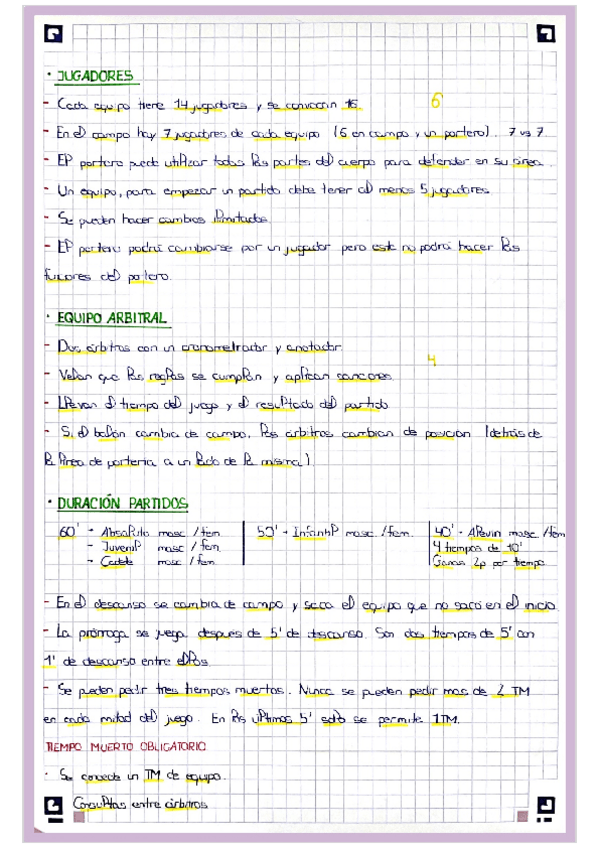 · JUGADORES
- Cada equipo tiene 14 jugadores y se convocan 16. 6
- En el campo hay 7 jugadores de cada equipo (6 en campo y un portero). 7 vs 7.
- El portero puede utilizar todas las partes del cuerpo para defender en su área.
- Un equipo, para empezar un partido debe tener al menos 5 jugadores.
- Se pueden hacer cambios ilimitados.
- El portero podrá cambiarse por un jugador pero este no podrá hacer las
funciones del portero.
· EQUIPO ARBITRAL
- Dos árbitros con un cronometrador y anotador.
4
- Velan que las reglas se cumplan y aplican sanciones.
- Llevan el tiempo del juego y el resultado del partido
- Si el balón cambia de campo, los árbitros cambian de posición (detrás de
la línea de portería a un lado de la misma)
· DURACIÓN PARTIDOS
60' - Absoluto masc / fem
- Juvenil masc / fem
- Cadete masc / fem
50' - Infantil masc. / fem.
40' - Alevín masc / fem
4 tiempos de 10'
Ganas 2p por tiempo
- En el descanso se cambia de campo y saca el equipo que no sacó en el inicio.
- La prórroga se juega después de 5' de descanso. Son dos tiempos de 5' con
1' de descanso entre ellos.
- Se pueden pedir tres tiempos muertos. Nunca se pueden pedir mas de 2 TM
en cada mitad del juego. En los últimos 5' solo se permite 1TM.
TIEMPO MUERTO OBLIGATORIO
· Se concede un TM de equipo.
· Consultas entre árbitros